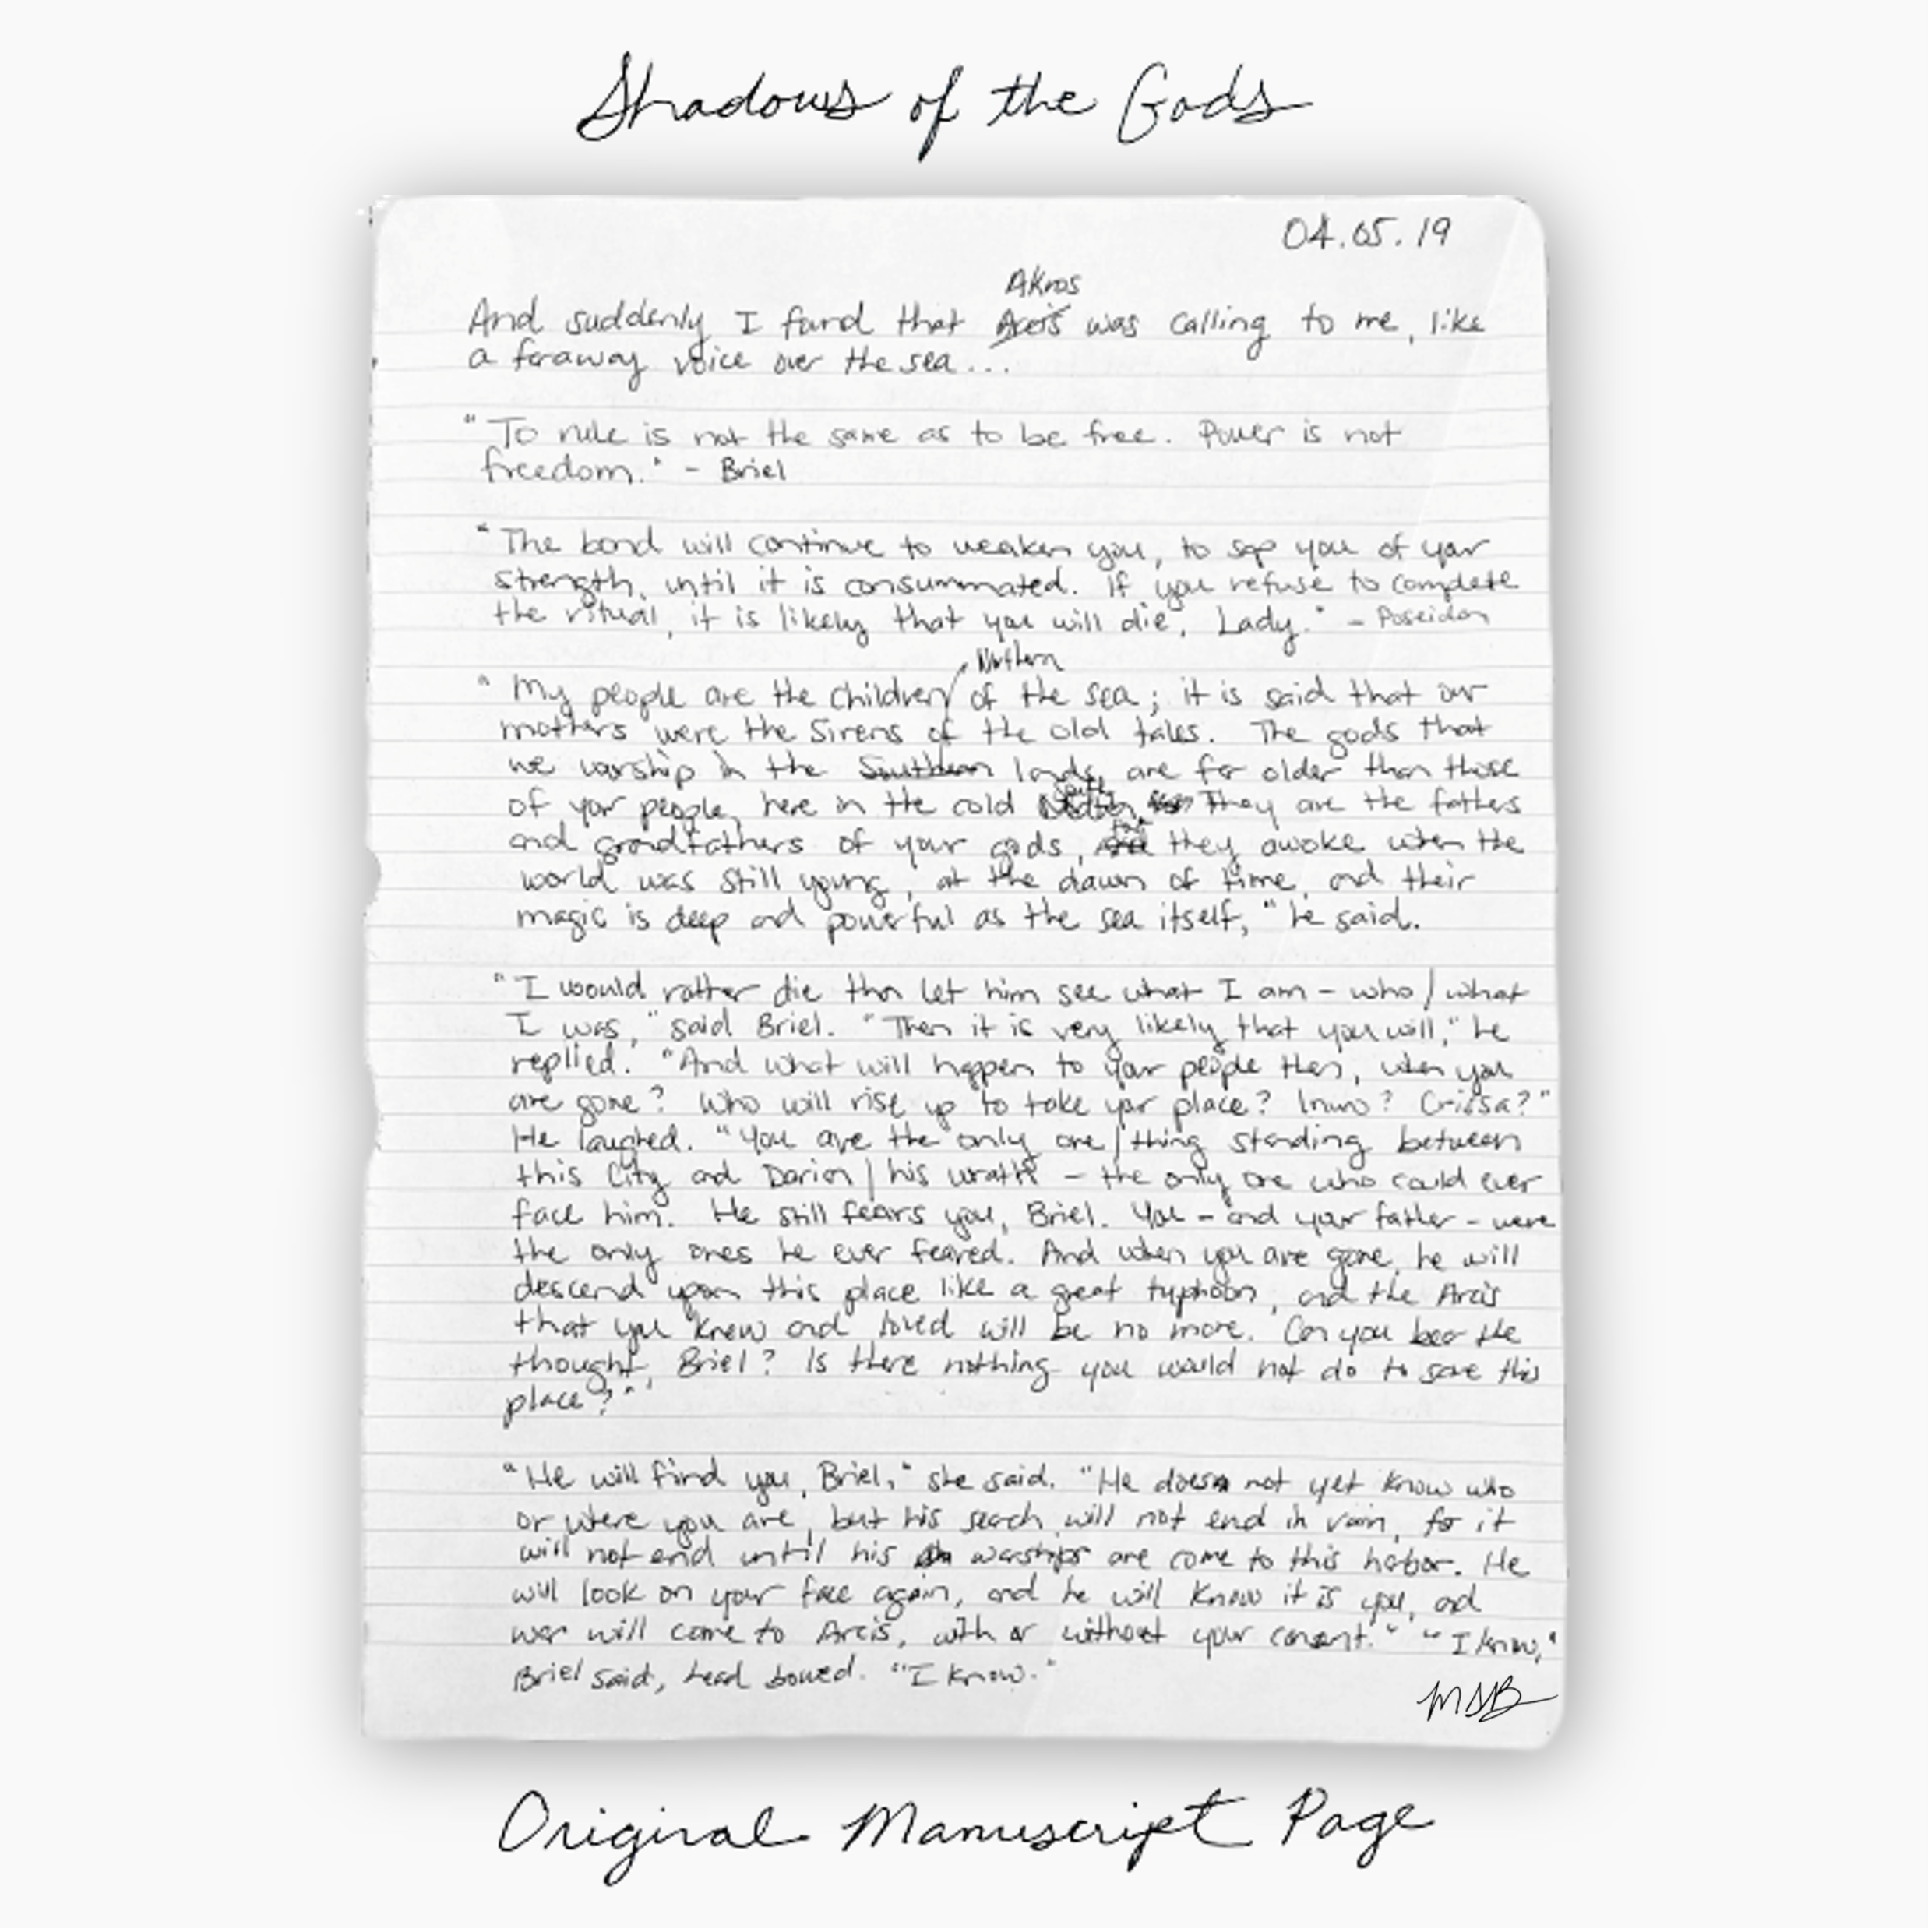 Shadows of the Gods
04.05.19
Akros
And suddenly I found that Arcis was calling to me, like
a faraway voice over the sea...
"To rule is not the same as to be free. Power is not
freedom." - Briel
"The bond will continue to weaken you, to sap you of your
strength, until it is consummated. If you refuse to complete
the ritual, it is likely that you will die, Lady." - Poseidon
Northern
"My people are the children of the sea; it is said that our
mothers were the Sirens of the old tales. The gods that
we worship in the Southern lands, are far older than those
of your people, here in the cold They are the fathers
and grandfathers of your gods, they awoke when the
world was still young, at the dawn of time, and their
magic is deep and powerful as the sea itself," he said.
"I would rather die than let him see what I am - who/what
I was," said Briel. "Then it is very likely that you will," he
replied. "And what will happen to your people then, when you
are gone? Who will rise up to take your place? Crissa?"
He laughed. "You are the only one/thing standing between
this City and Darion/his wrath - the only one who could ever
face him. He still fears you, Briel. You - and your father - were
the only ones he ever feared. And when you are gone, he will
descend upon this place like a great typhoon, and the Arcis
that you knew and loved will be no more. Can you bear the
thought, Briel? Is there nothing you would not do to save this
place?"
"He will find you, Briel," she said. "He does not yet know who
or where you are, but his search will not end in vain, for it
will not end until his warships are come to this harbor. He
will look on your face again, and he will know it is you, and
war will come to Arcis, with or without your consent." "I know,"
Briel said, head bowed. "I know."
MSB
Original Manuscript Page